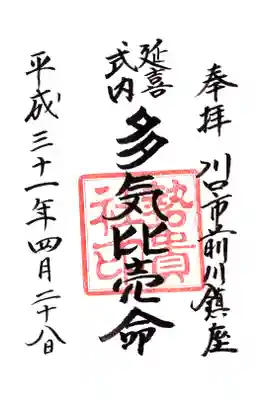 奉拝 川口市前川鎮座
延喜
式内
多気比売命
平成三十一年四月二十八日